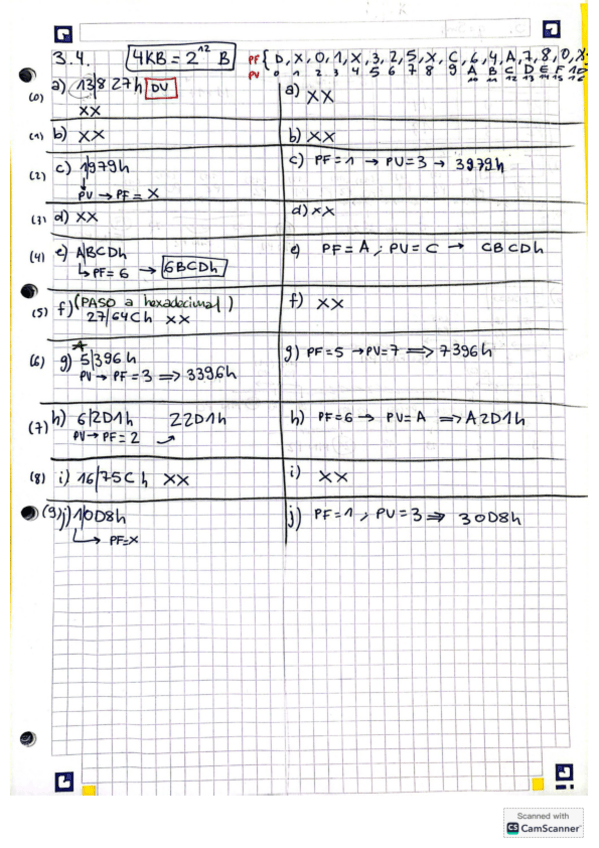 3.4. 4KB = 2^12 B PF { D, X, 0, 1, X, 3, 2, 5, X, C, 6, 4, A, 7, 8, 0, X
PV 0 1 2 3 4 5 6 7 8 9 A B C D E F 10
10 11 12 13 14 15 16
(0) a) 13/827h DV
XX
a) XX
(1) b) XX
b) XX
(2) c) 1/979h
PV → PF = X
c) PF = 1 → PV = 3 → 3979h
(3) d) XX
d) XX
(4) e) A/BCDh
↳ PF = 6 → 6BCDh
e) PF = A ; PV = C → CBCDh
(5) f) (PASO a hexadecimal)
27/64Ch XX
f) XX
(6) g) 5/396h
PV → PF = 3 ⇒ 3396h
g) PF = 5 → PV = 7 ⇒ 7396h
(7) h) 6/2D1h 22D1h
PV → PF = 2
h) PF = 6 → PV = A ⇒ A2D1h
(8) i) 16/75Ch XX
i) XX
(9) j) 1/0D8h
↳ PF = X
j) PF = 1 , PV = 3 ⇒ 30D8h
Scanned with
CS CamScanner